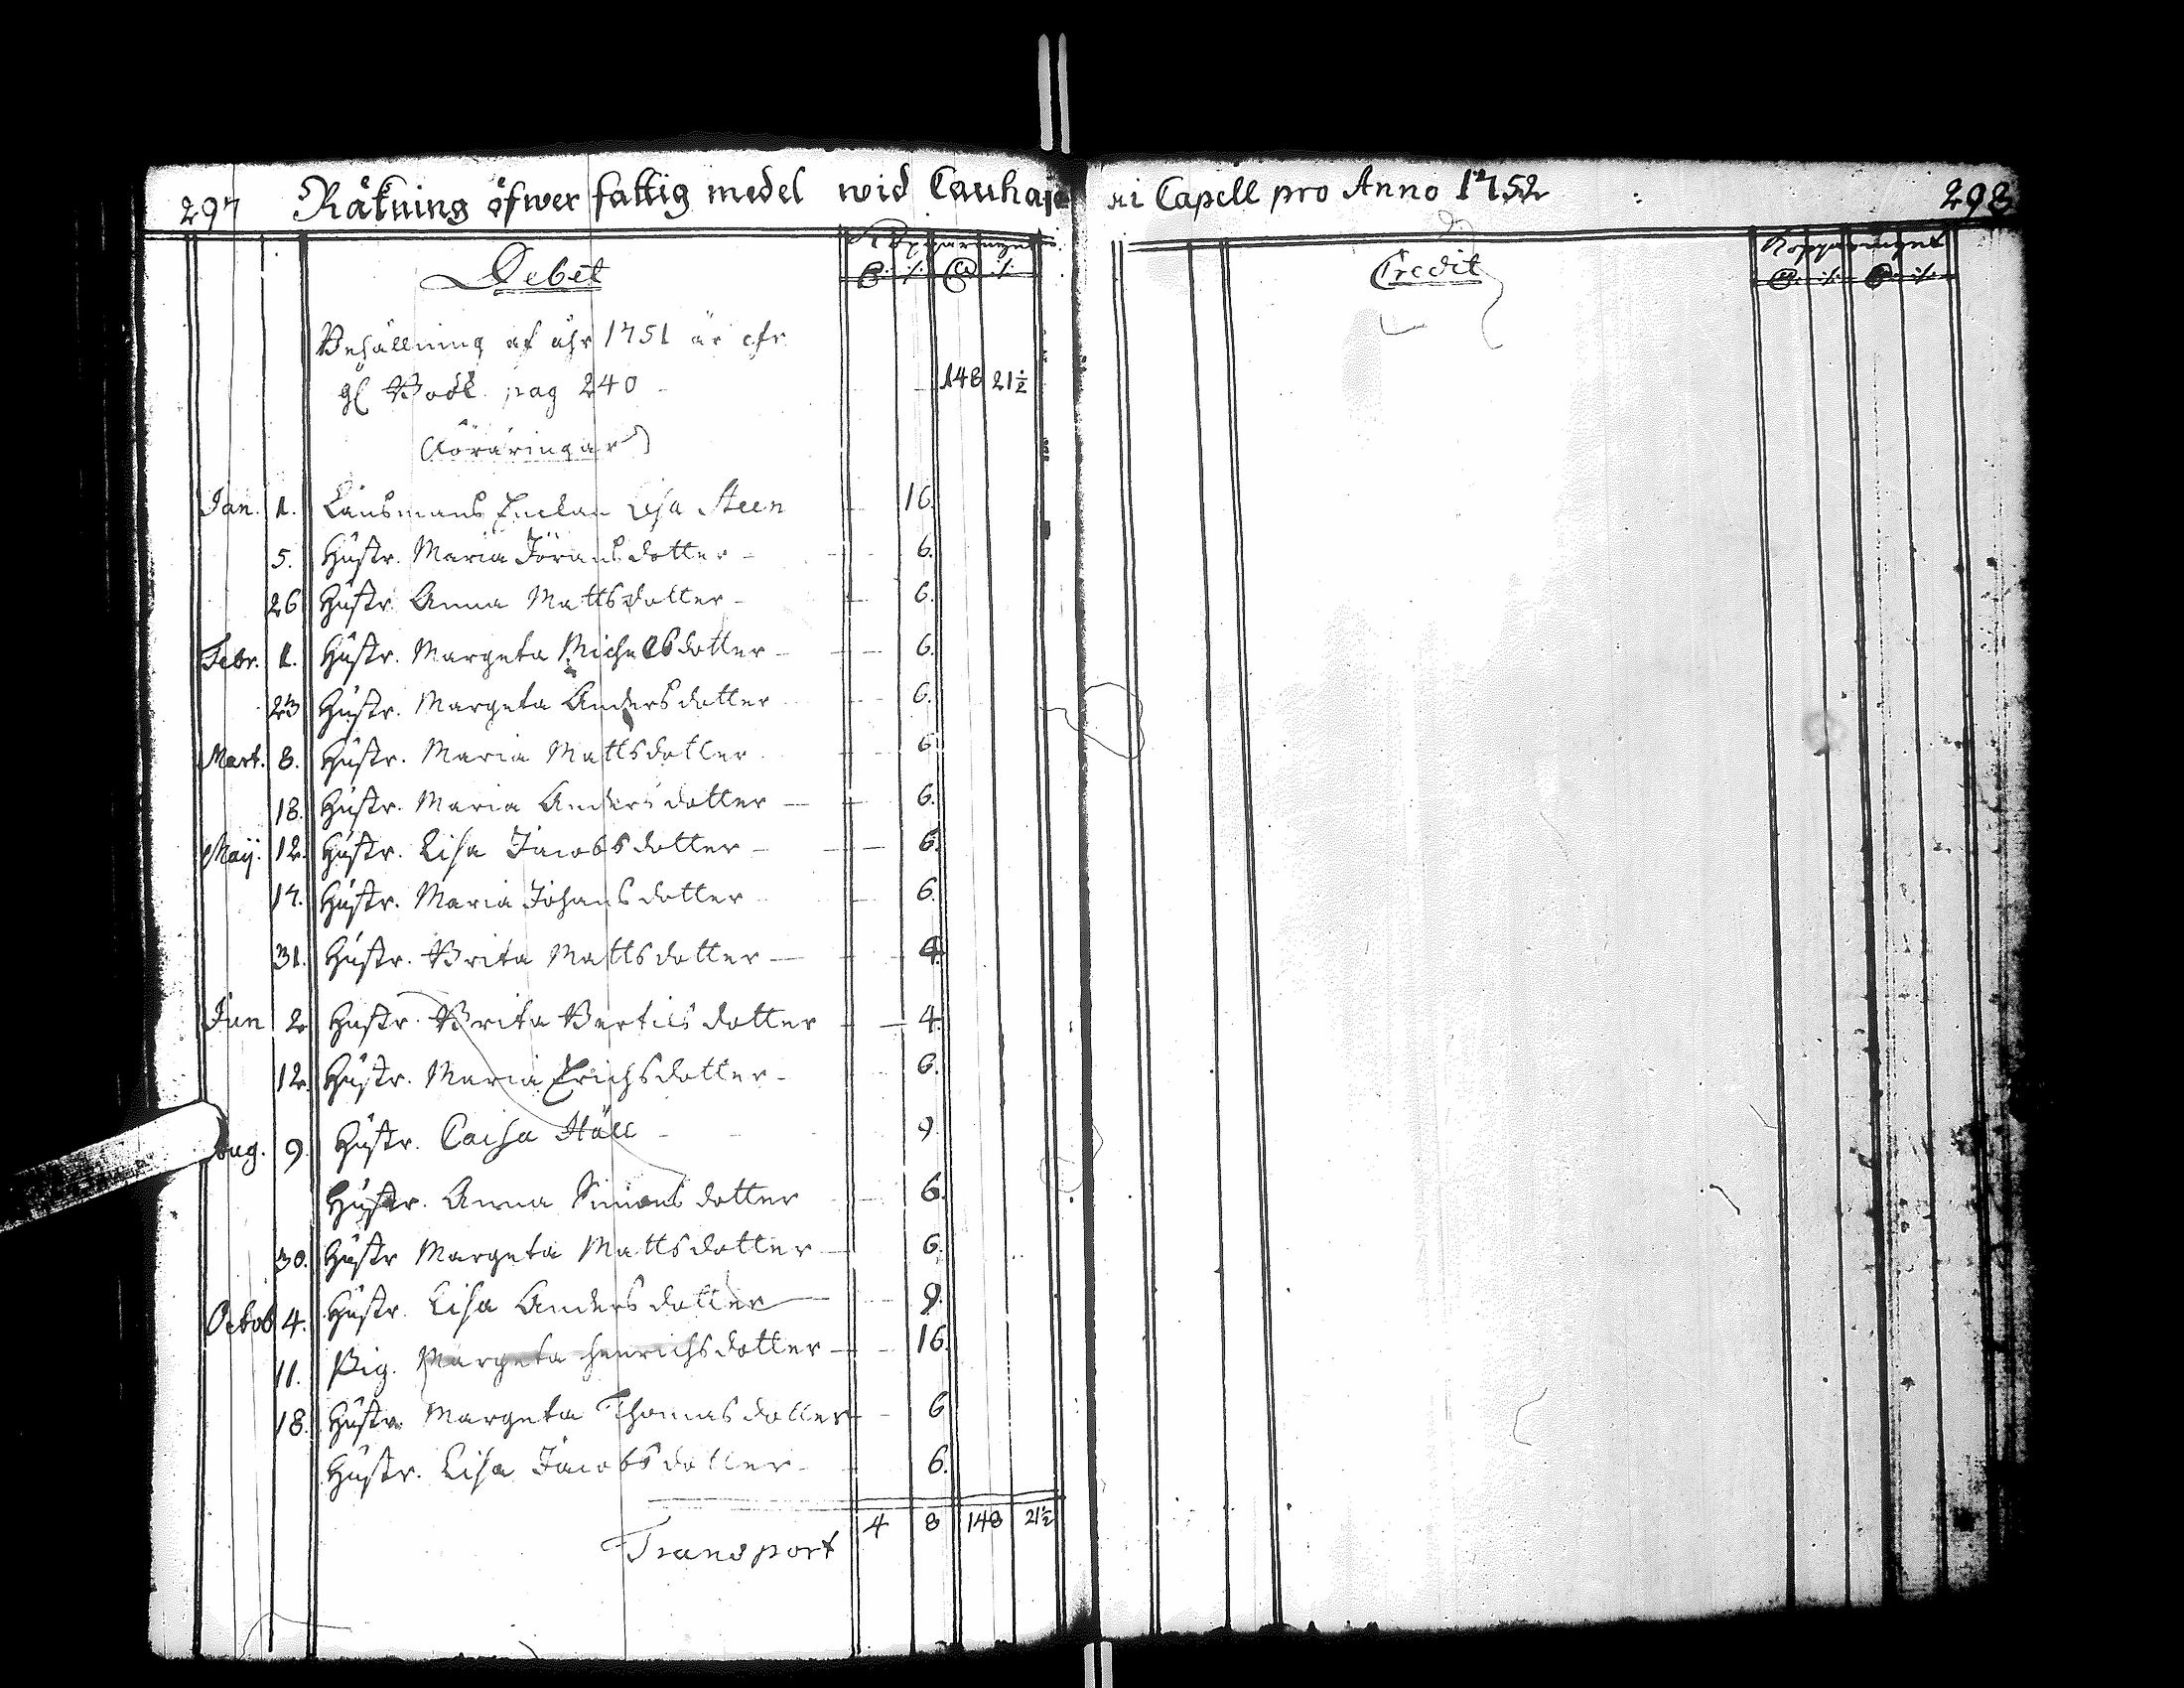 297 Räkning öfwer fattig medel wid Cauhajo
Debet
Kopparmynt
Behållning af åhr 1751 är cfr
gl Book. pag 240 - 148 21½
(Föräringar)
Jan. 1. Länsmans Enckan Lisa Steen 16.
5. Hustr. Maria Jöransdotter - 6.
26 Hustr. Anna Mattsdotter - 6.
Febr. 1. Hustr. Margeta Michelsdotter - 6.
23 Hustr. Margeta Andersdotter 6.
Mart. 8. Hustr. Maria Mattsdotter 6
18. Hustr. Maria Andersdotter - 6.
Maij. 12. Hustr. Lisa Jacobsdotter - 6.
17. Hustr. Maria Johansdotter 6.
31. Hustr. Brita Mattsdotter - 4.
Jun 2 Hustr. Brita Bertilsdotter - 4.
12. Hustr. Maria Erichsdotter - 6.
Aug. 9. Hustr. Caisa Ståll - 9.
Hustr. Anna Simonsdotter 6.
30. Hustr Margeta Mattsdotter - 6.
Octob 4. Hustr. Lisa Andersdotter 9.
11. Pig. Margeta Henrichsdotter - 16.
18. Hustr. Margeta Thomasdotter - 6
Hustr. Lisa Jacobsdotter - 6.
Transport 4 8 148 21½
ki Capell pro Anno 1752 298
Credit
Kopparmynt